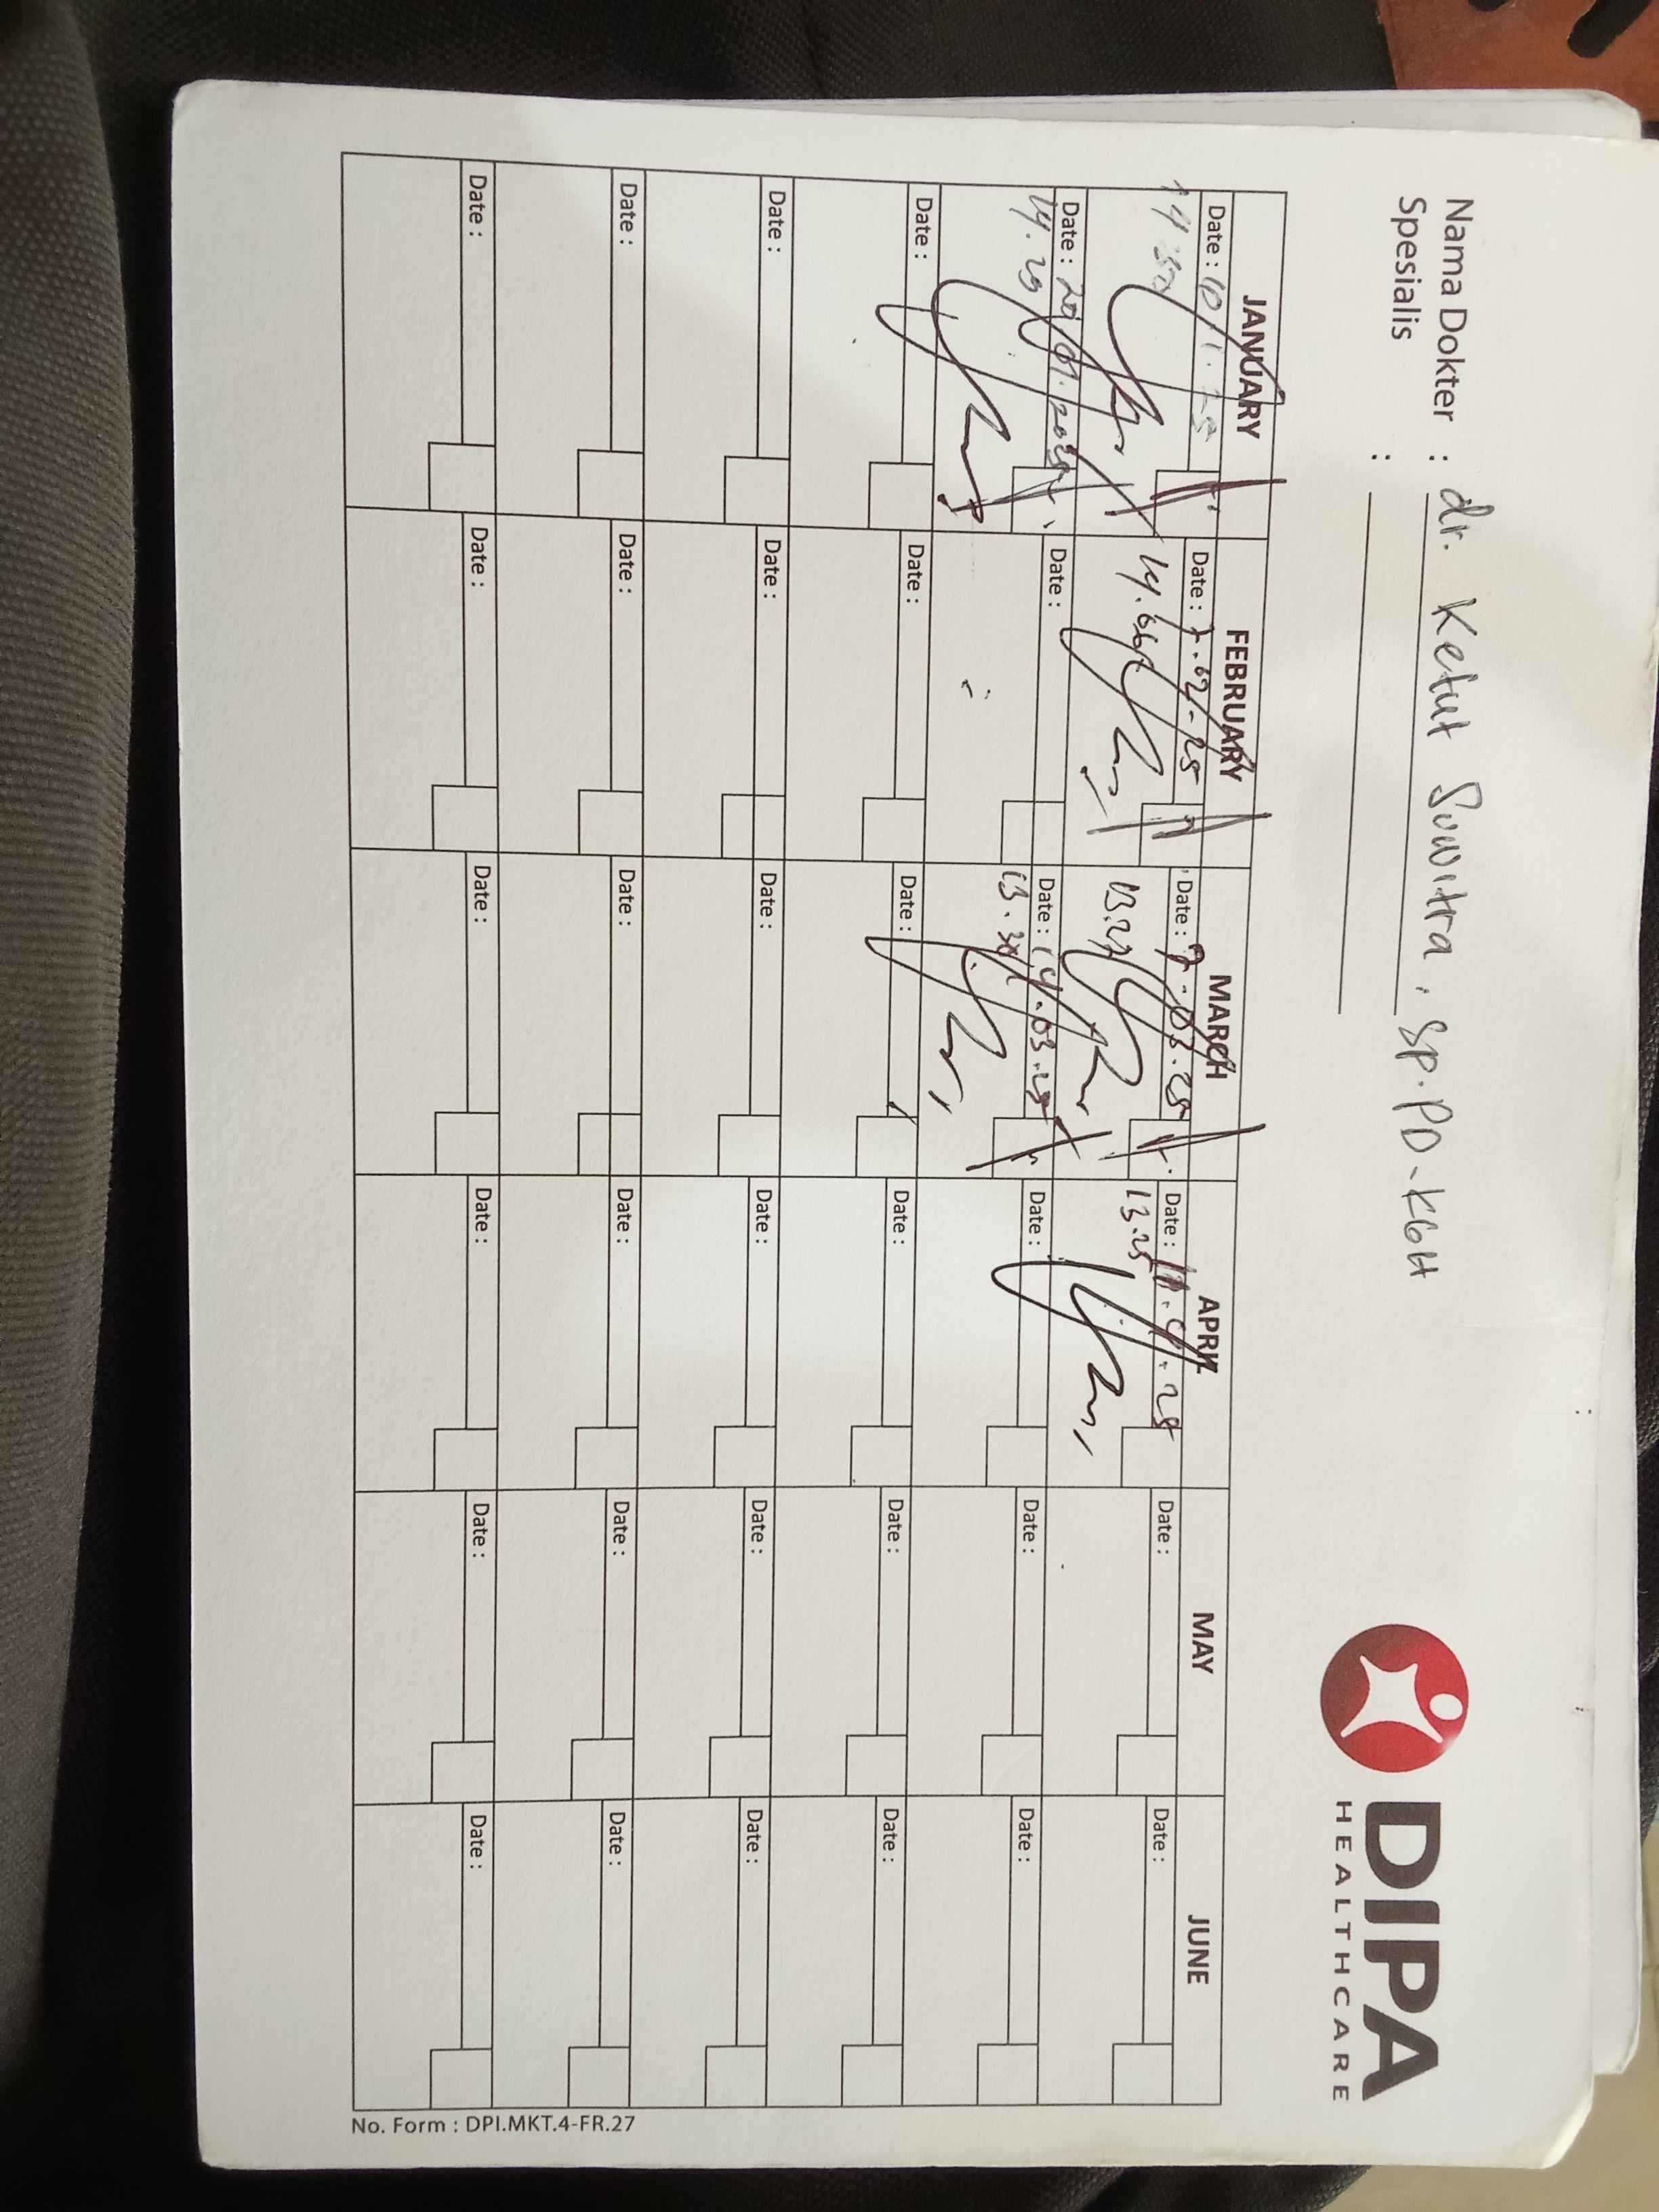 Nama Dokter : dr. Ketut Suwitra, Sp.PD-KGH
Spesialis :
DIPA
HEALTHCARE
JANUARY FEBRUARY MARCH APRIL MAY JUNE
Date : 10.1.25 Date : 7.02-25 Date : 7.03.25 Date : 11.04.25 Date : Date :
14.30 13.27 13.25
Date : 20/01.2025 Date : Date : 14.03.25 Date : Date : Date :
14.25 13.30
Date : Date : Date : Date : Date : Date :
Date : Date : Date : Date : Date : Date :
Date : Date : Date : Date : Date : Date :
Date : Date : Date : Date : Date : Date :
No. Form : DPI.MKT.4-FR.27